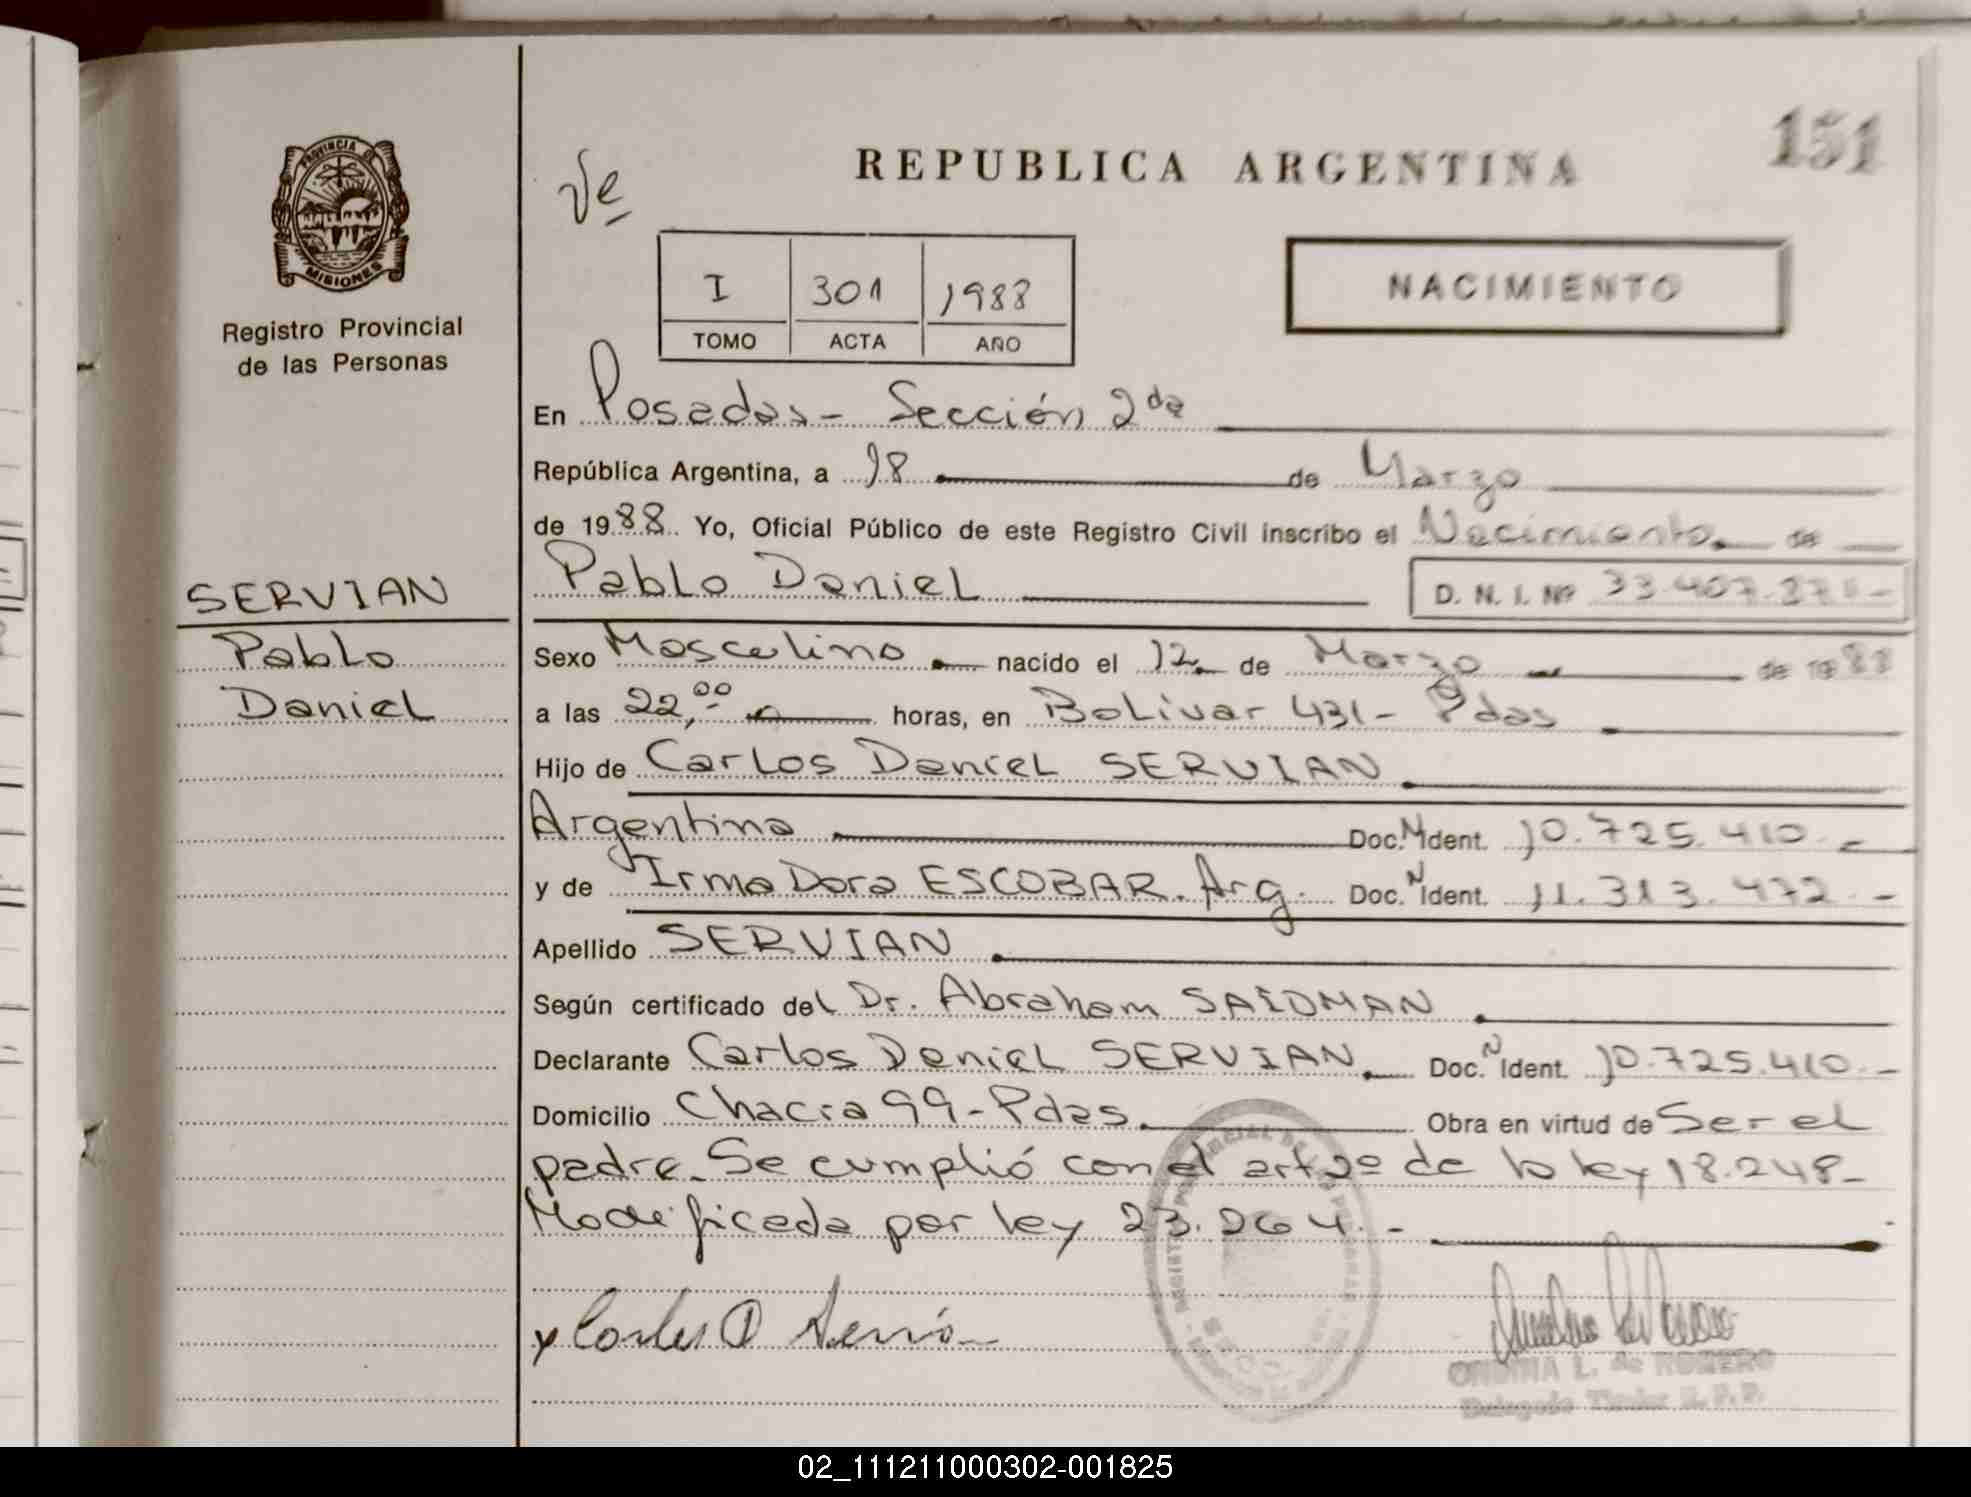 151
REPUBLICA ARGENTINA
Ve
PROVINCIA DE
MISIONES
Registro Provincial
de las Personas
I 301 1988
TOMO ACTA AÑO
NACIMIENTO
En Posadas - Sección 2da
República Argentina, a 18 de Marzo
de 1988. Yo, Oficial Público de este Registro Civil inscribo el Nacimiento de
SERVIAN
Pablo
Daniel
Pablo Daniel D. N. I. Nº
Sexo Masculino nacido el 12 de Marzo de 1988
a las 22,00 horas, en Bolivar 431 - Pdas
Hijo de Carlos Daniel SERVIAN
Argentino Doc. N Ident. 10.725.410.-
y de Irma Dora ESCOBAR. Arg. Doc. N Ident. 11.313.472.-
Apellido SERVIAN
Según certificado del Dr. Abraham SAIDMAN
Declarante Carlos Daniel SERVIAN. Doc. N Ident. 10.725.410.-
Domicilio Chacra 99 - Pdas. Obra en virtud de Ser el
padre. Se cumplió con el art 2º de la ley 18.248 -
Modificada por ley 23.264. -
x Carlos D Servián
L. de ROMERO
02_111211000302-001825